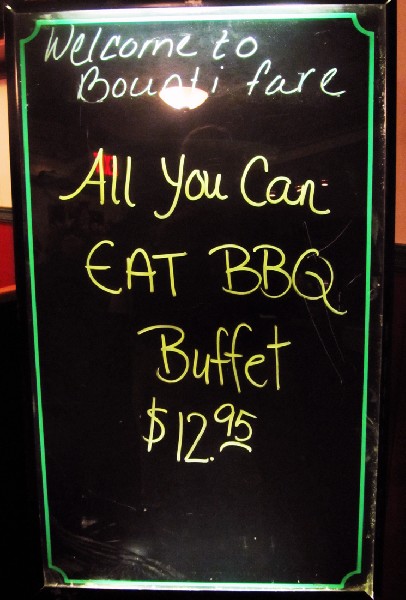 Welcome to
Bounti fare
All You Can
EAT BBQ
Buffet
$12.95